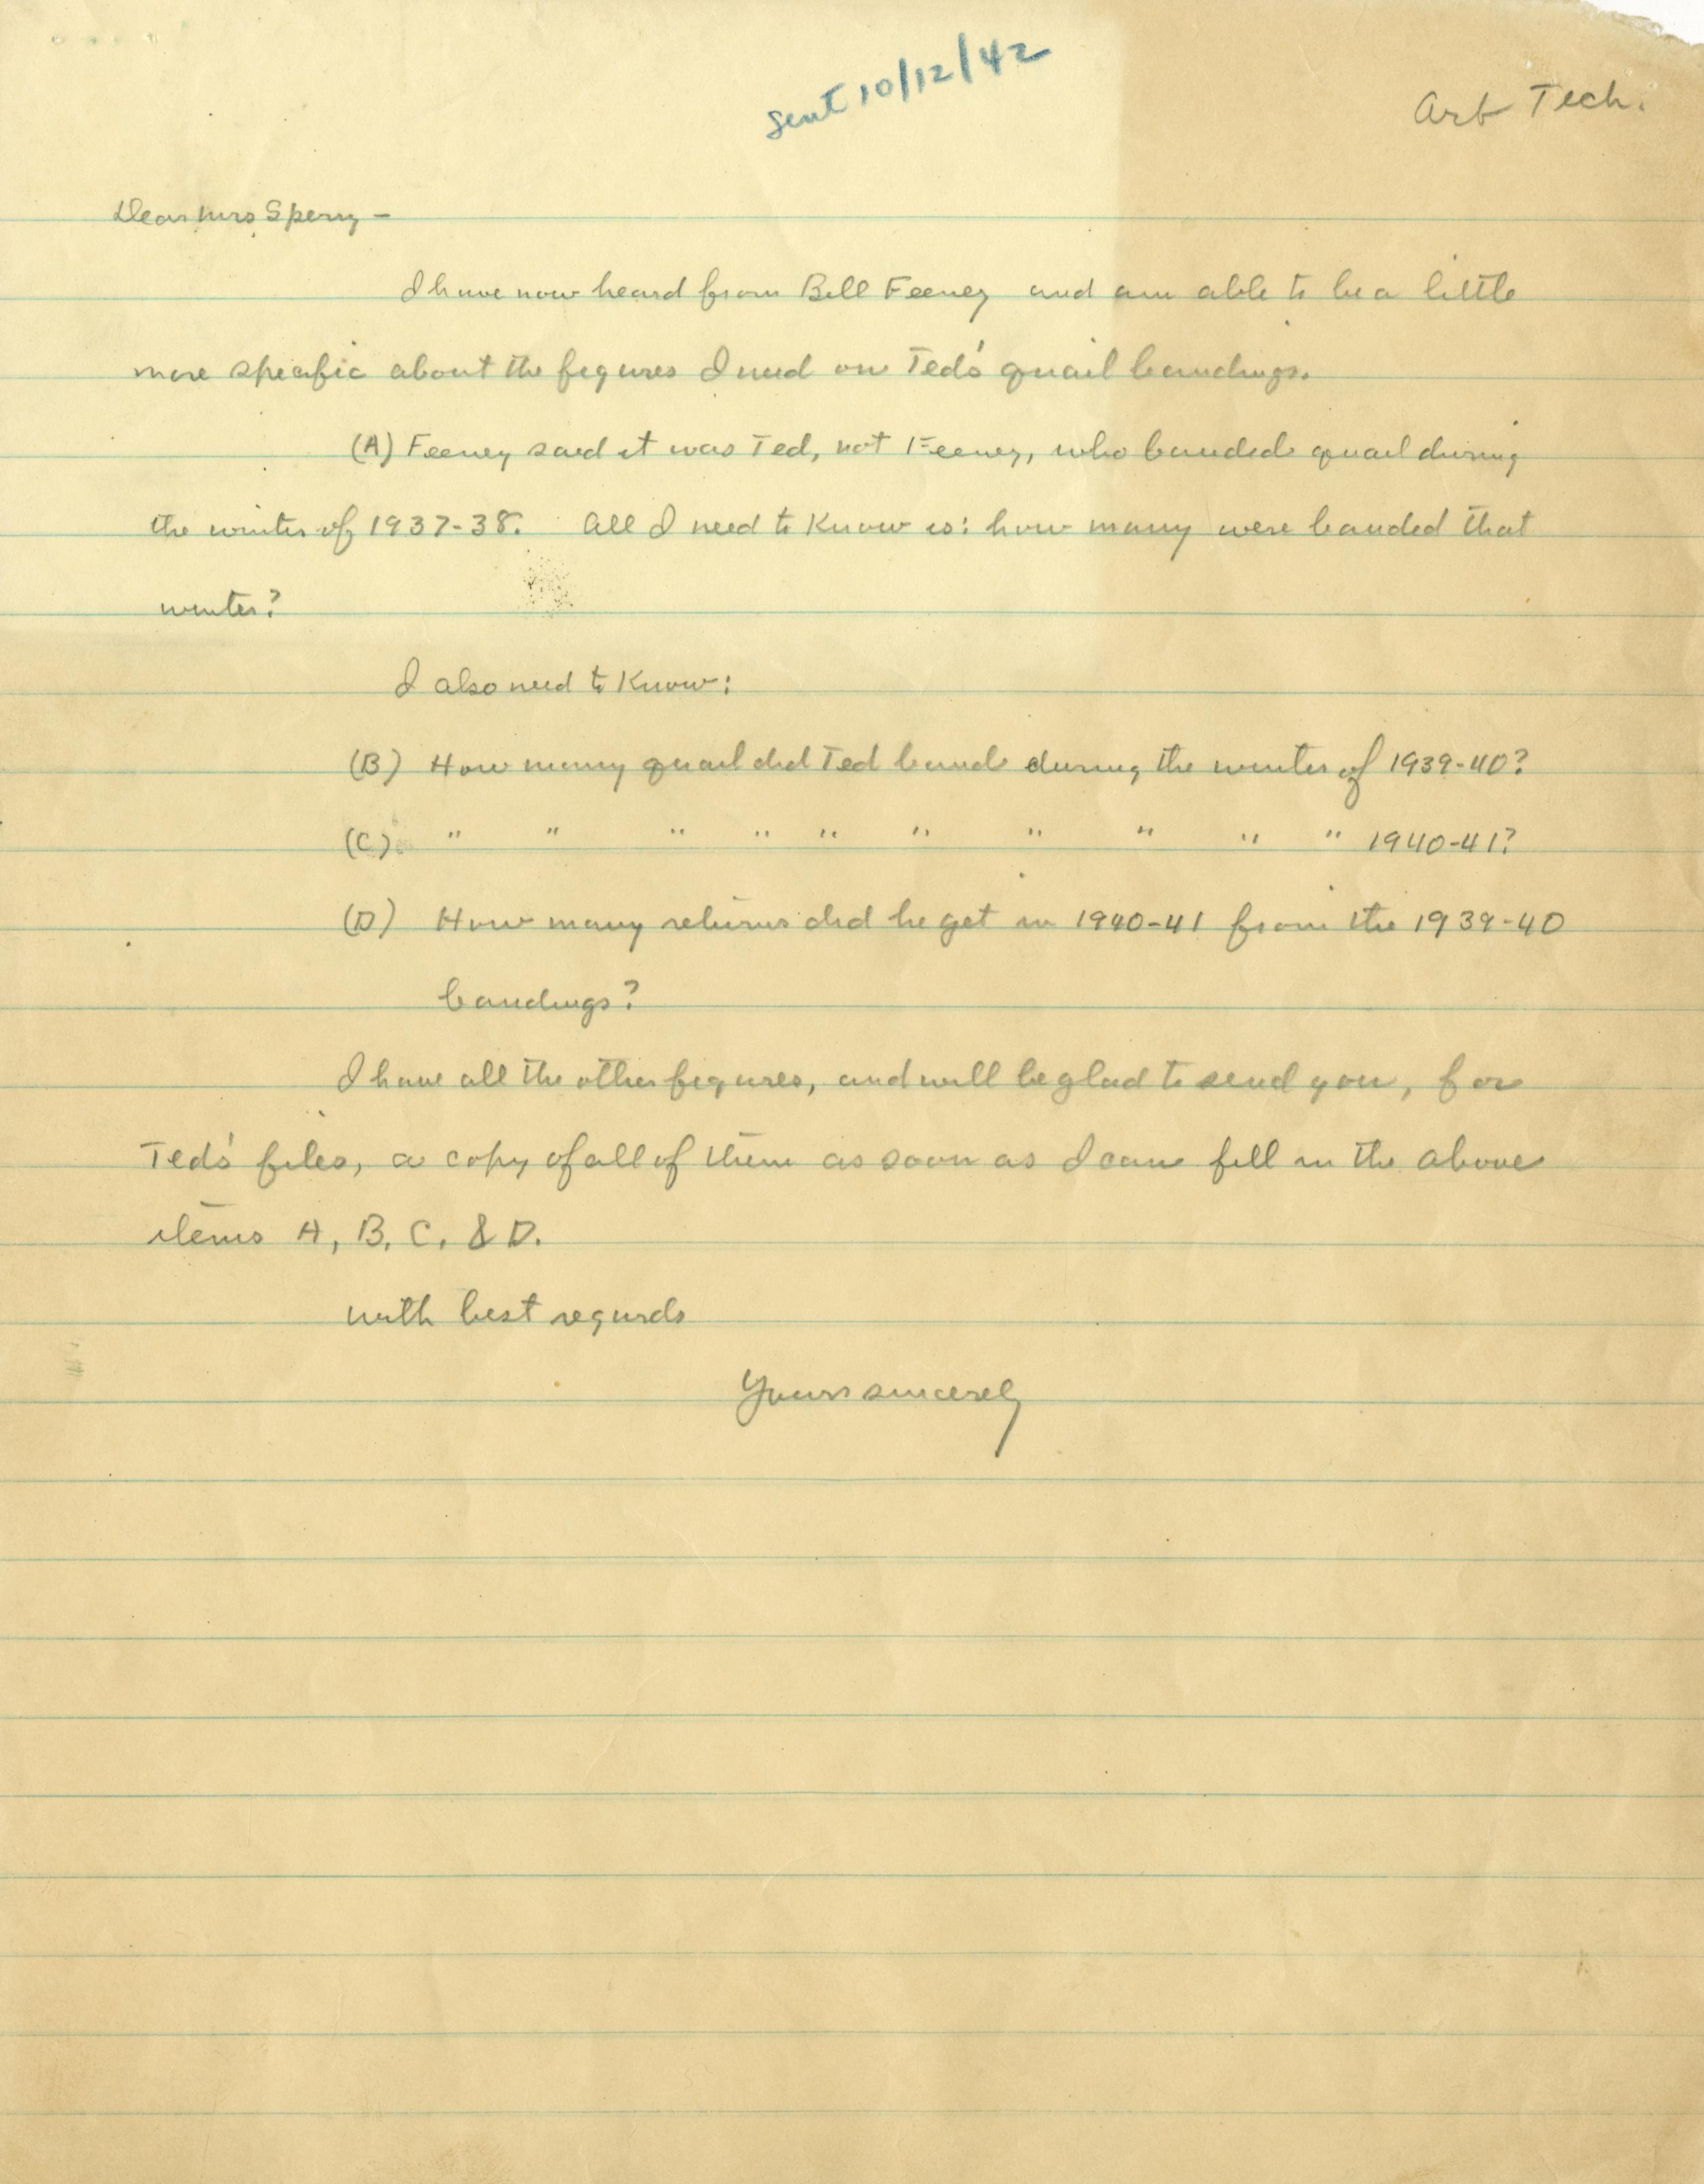 sent 10/12/42
Arb Tech.
Dear Mrs Sperry -
I have now heard from Bill Feeney and am able to be a little
more specific about the figures I need on Ted's quail bandings.
(A) Feeney said it was Ted, not Feeney, who banded quail during
the winter of 1937-38. All I need to know is: how many were banded that
winter?
I also need to know:
(B) How many quail did Ted band during the winter of 1939-40?
(C) " " " " " " " " " " 1940-41?
(D) How many returns did he get in 1940-41 from the 1939-40
bandings?
I have all the other figures, and will be glad to send you, for
Ted's files, a copy of all of them as soon as I can fill in the above
items A, B, C, & D.
with best regards
Yours sincerely